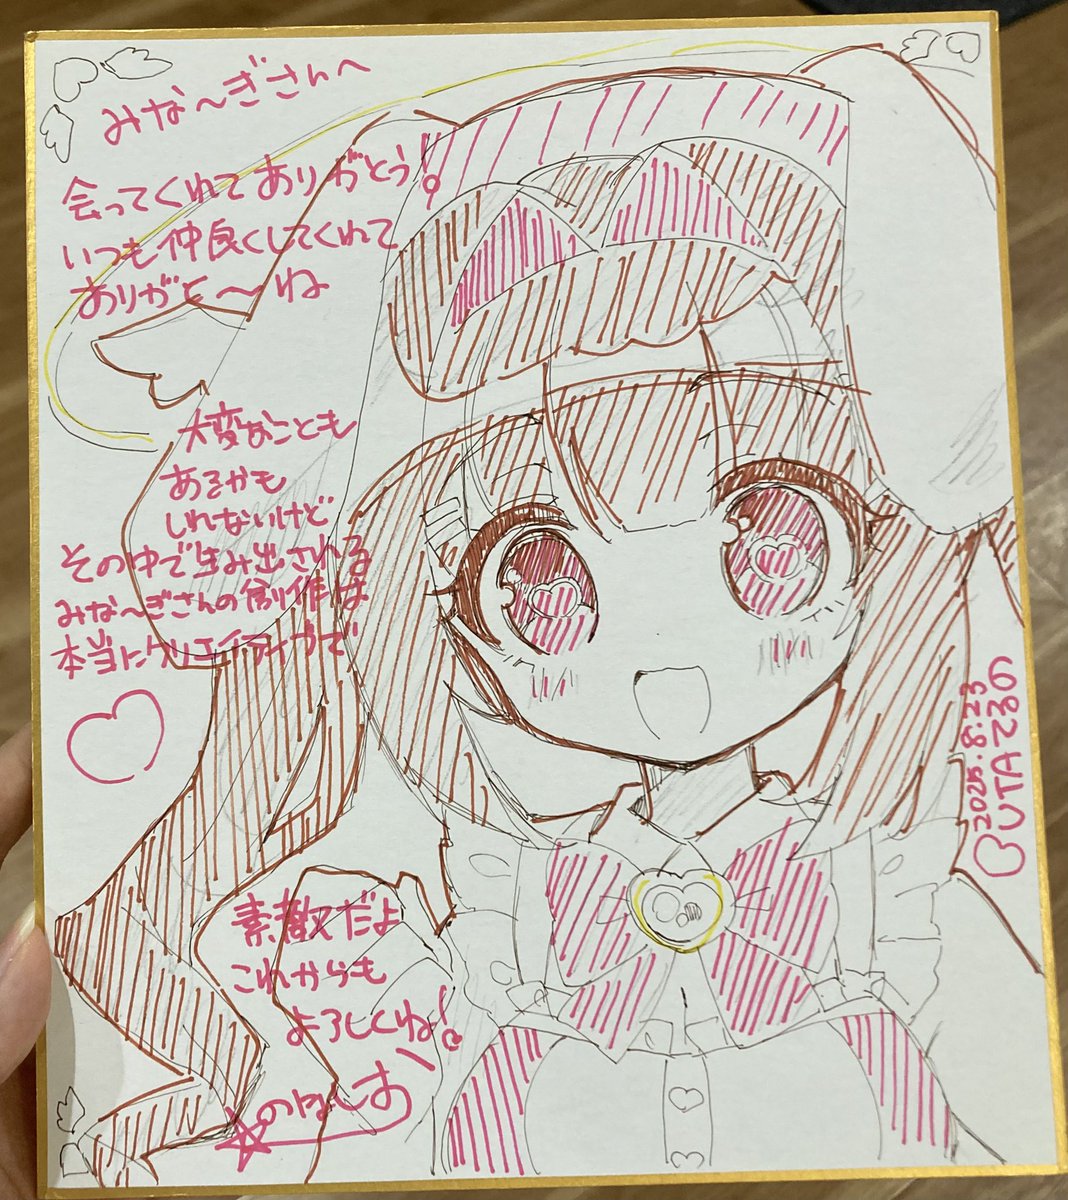 みな〜ぎさんへ
会ってくれてありがとう!
いつも仲良くしてくれて
ありがと〜ね
大変なことも
あるかも
しれないけど
その中で生み出される
みな〜ぎさんの創作は
本当にクリエイティブで
素敵だよ
これからも
よろしくね!
のほしお
2025.8.23
UTAてるの